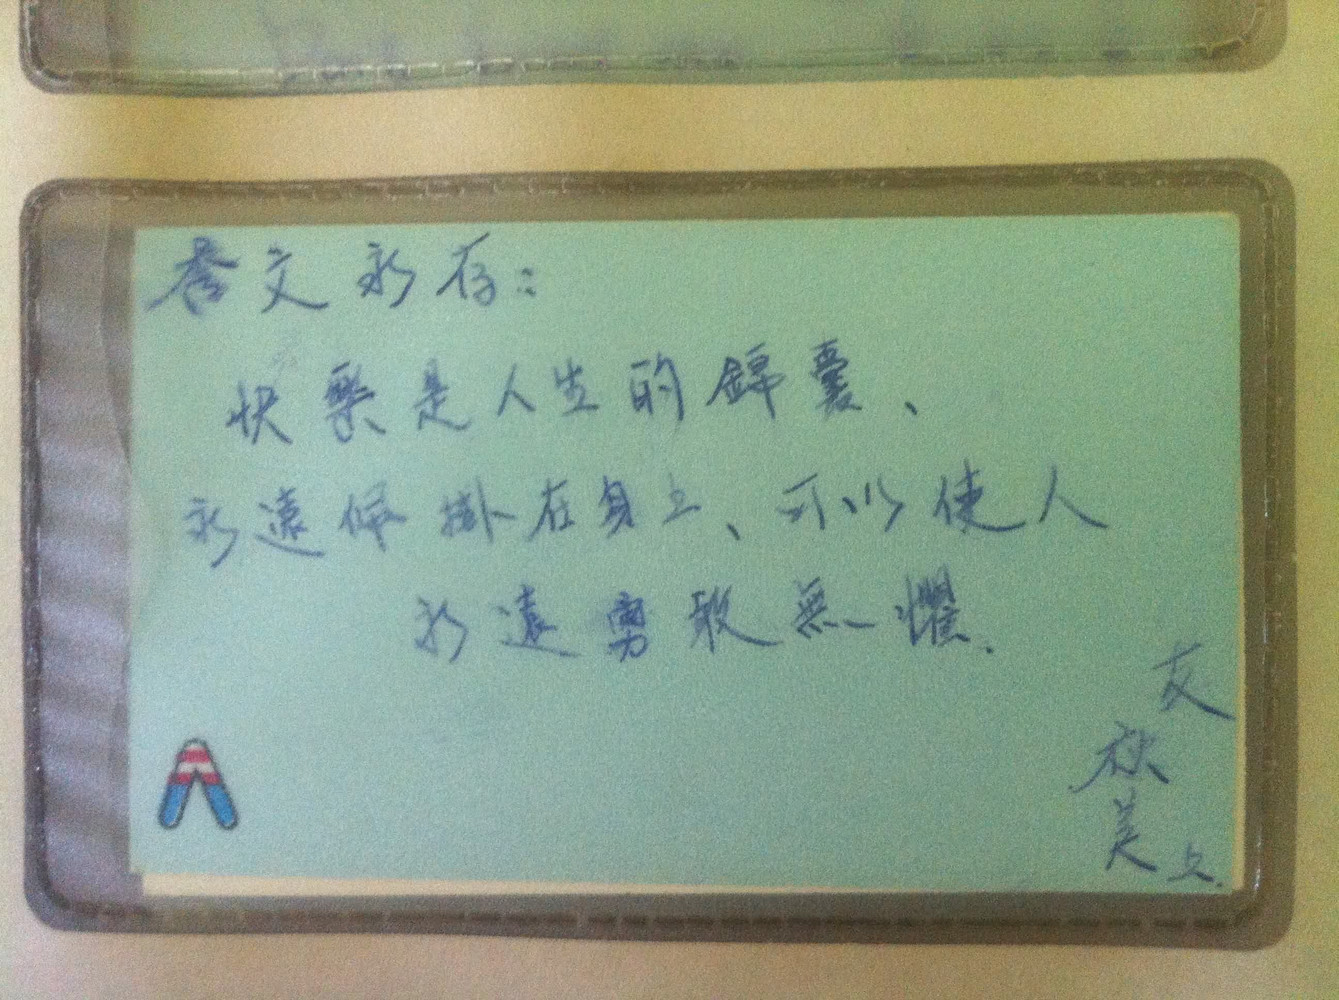 文永存：
快樂是人生的錦囊、
永遠保掛在身上、可以使人
永遠勇敢無懼.
友
秋美上.